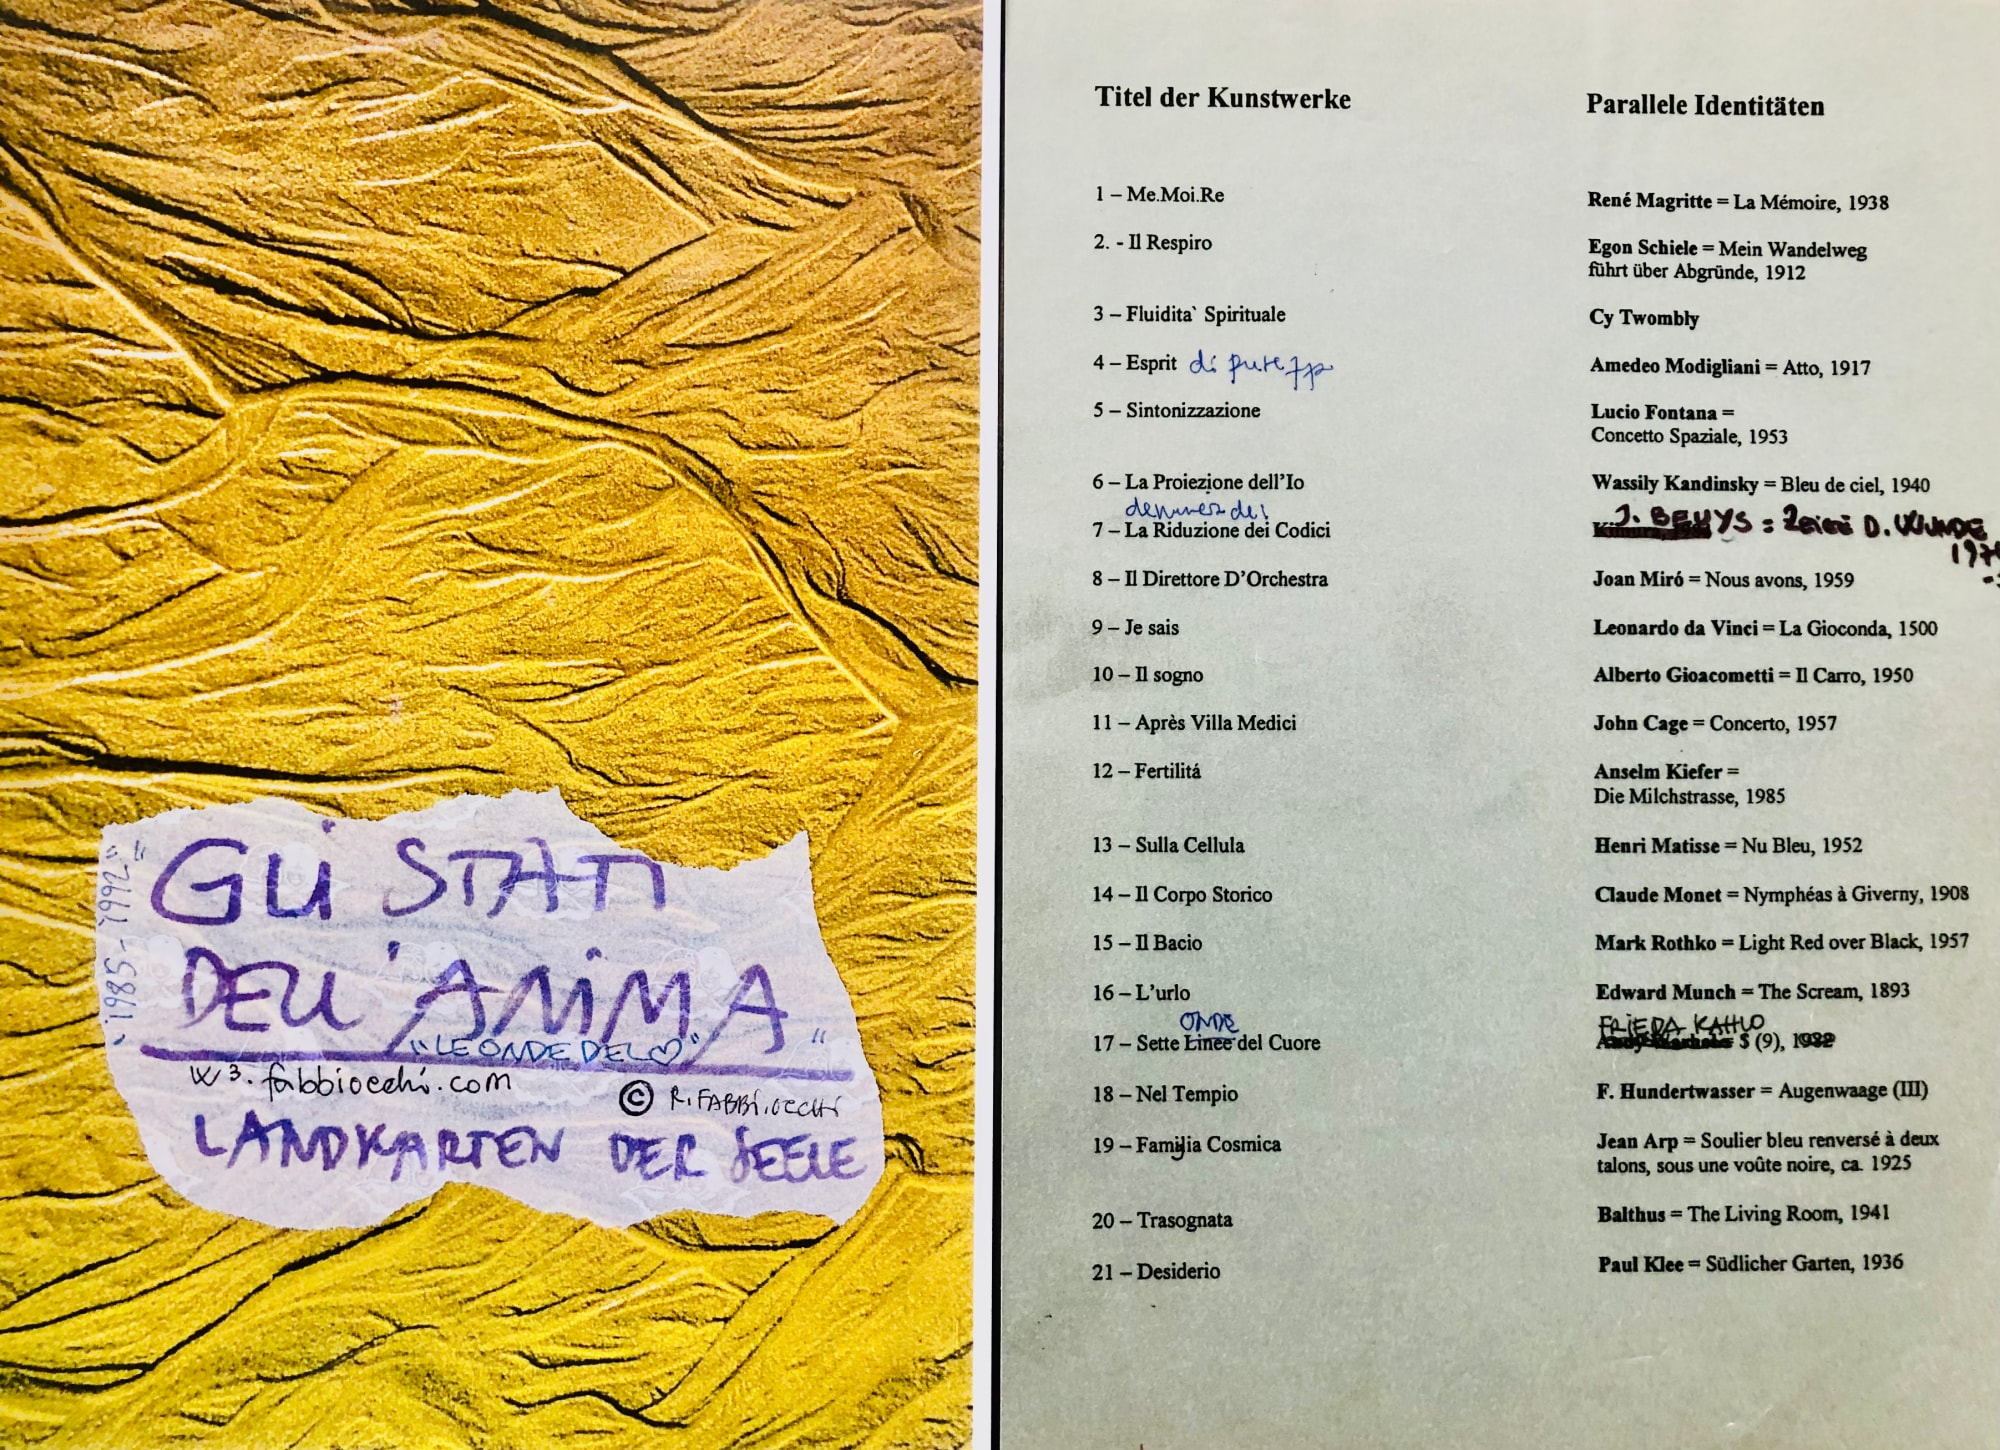 "1985-1992"
GLI STATI
DELL'ANIMA
"LE ONDE DEL ♡"
W³. fabbiocchi.com
© R. FABBI.OCCHI
LANDKARTEN DER SEELE
Titel der Kunstwerke
Parallele Identitäten
1 – Me.Moi.Re
René Magritte = La Mémoire, 1938
2. - Il Respiro
Egon Schiele = Mein Wandelweg
führt über Abgründe, 1912
3 – Fluidita` Spirituale
Cy Twombly
4 – Esprit di
Amedeo Modigliani = Atto, 1917
5 – Sintonizzazione
Lucio Fontana =
Concetto Spaziale, 1953
6 – La Proiezione dell'Io
Wassily Kandinsky = Bleu de ciel, 1940
7 – La Riduzione dei Codici
J. BEUYS = D. WUNDE
8 – Il Direttore D'Orchestra
Joan Miró = Nous avons, 1959
9 – Je sais
Leonardo da Vinci = La Gioconda, 1500
10 – Il sogno
Alberto Gioacometti = Il Carro, 1950
11 – Après Villa Medici
John Cage = Concerto, 1957
12 – Fertilitá
Anselm Kiefer =
Die Milchstrasse, 1985
13 – Sulla Cellula
Henri Matisse = Nu Bleu, 1952
14 – Il Corpo Storico
Claude Monet = Nymphéas à Giverny, 1908
15 – Il Bacio
Mark Rothko = Light Red over Black, 1957
16 – L'urlo
Edward Munch = The Scream, 1893
ONDE
17 – Sette Linee del Cuore
FRIEDA KAHLO
$ (9), 1982
18 – Nel Tempio
F. Hundertwasser = Augenwaage (III)
19 – Familia Cosmica
Jean Arp = Soulier bleu renversé à deux
talons, sous une voûte noire, ca. 1925
20 – Trasognata
Balthus = The Living Room, 1941
21 – Desiderio
Paul Klee = Südlicher Garten, 1936